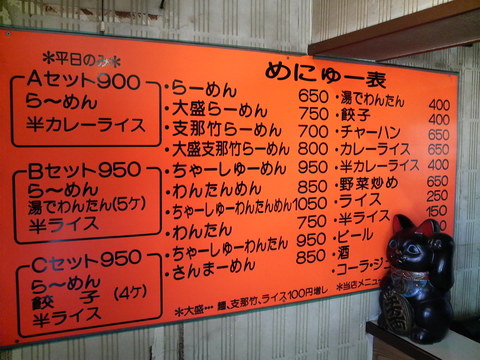 めにゅー表
*平日のみ*
Aセット900
ら〜めん
半カレーライス
Bセット950
ら〜めん
湯でわんたん(5ケ)
半ライス
Cセット950
ら〜めん
餃 子 (4ケ)
半ライス
・らーめん 650
・大盛らーめん 750
・支那竹らーめん 700
・大盛支那竹らーめん 800
・ちゃーしゅーめん 950
・わんたんめん 850
・ちゃーしゅーわんたんめん 1050
・わんたん 750
・ちゃーしゅーわんたん 950
・さんまーめん 850
・湯でわんたん 400
・餃子 400
・チャーハン 650
・カレーライス 650
・半カレーライス 400
・野菜炒め 650
・ライス 250
・半ライス 150
・ビール
・酒
・コーラ・ジ
*大盛… 麺、支那竹、ライス100円増し
*当店メニュ